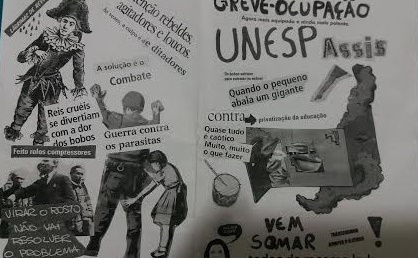 tenção rebeldes,
agitadores e loucos.
ditadores
A solução é o
Combate
Reis cruéis
se divertiam
com a dor
dos bobos
Guerra contra
os parasitas
Feito rolos compressores
VIRAR O ROSTO
NÃO VAI
RESOLVER
O PROBLEMA
GREVE-OCUPAÇÃO
Agora mais equipada e ainda mais potente
UNESP Assis
Quando o pequeno
abala um gigante
contra privatização da educação
Quase tudo
é caótico
Muito, muito
o que fazer
VEM
SOMAR